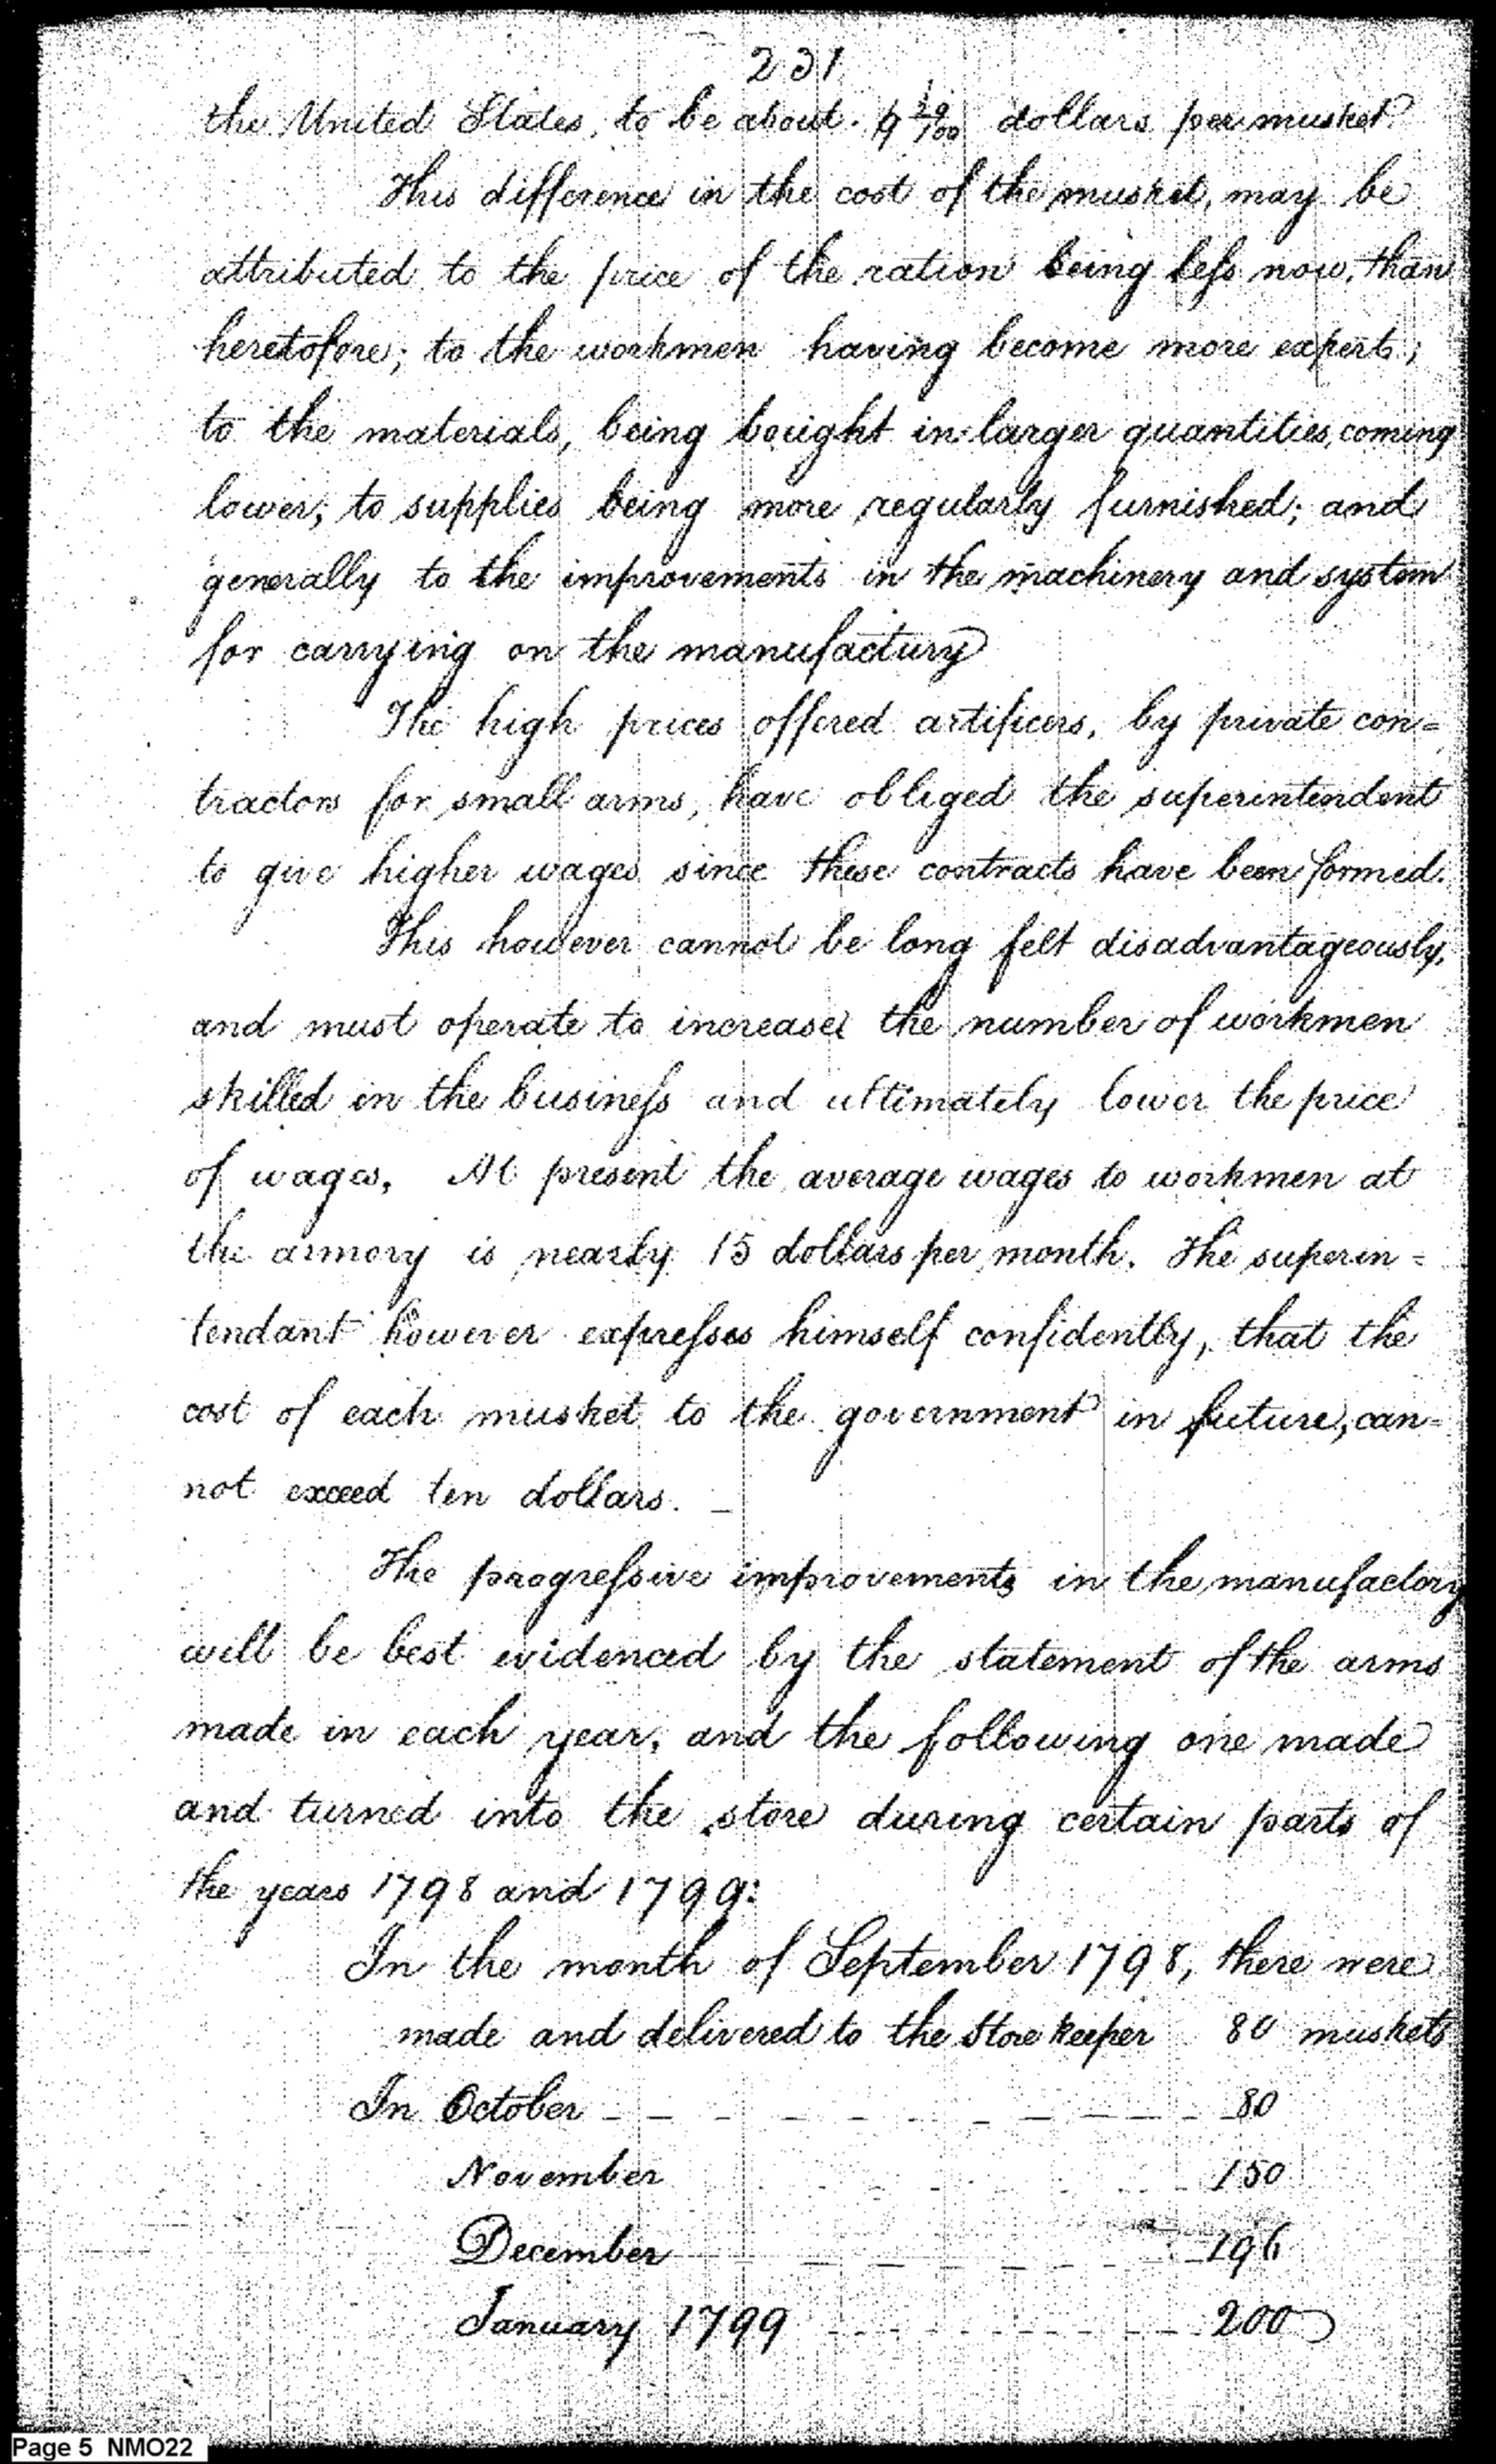 231
the United States, to be about 9 29/100 dollars per musket
This difference in the cost of the musket, may be
attributed to the price of the ration being less now, than
heretofore; to the workmen having become more expert;
to the materials, being bought in larger quantities, coming
lower; to supplies being more regularly furnished; and
generally to the improvements in the machinery and system
for carrying on the manufactury
The high prices offered artificers, by private con=
tractors for small arms, have obliged the superintendent
to give higher wages since these contracts have been formed.
This however cannot be long felt disadvantageously,
and must operate to increase the number of workmen
skilled in the business and ultimately lower the price
of wages. At present the average wages to workmen at
the armory is nearly 15 dollars per month. The superin=
tendant however expresses himself confidently, that the
cost of each musket to the government in future, can=
not exceed ten dollars. —
The progressive improvements in the manufactory
will be best evidenced by the statement of the arms
made in each year, and the following one made
and turned into the store during certain parts of
the years 1798 and 1799:
In the month of September 1798, there were
made and delivered to the Store keeper 80 muskets
In October 80
November 150
December 196
January 1799 200
Page 5 NMO22